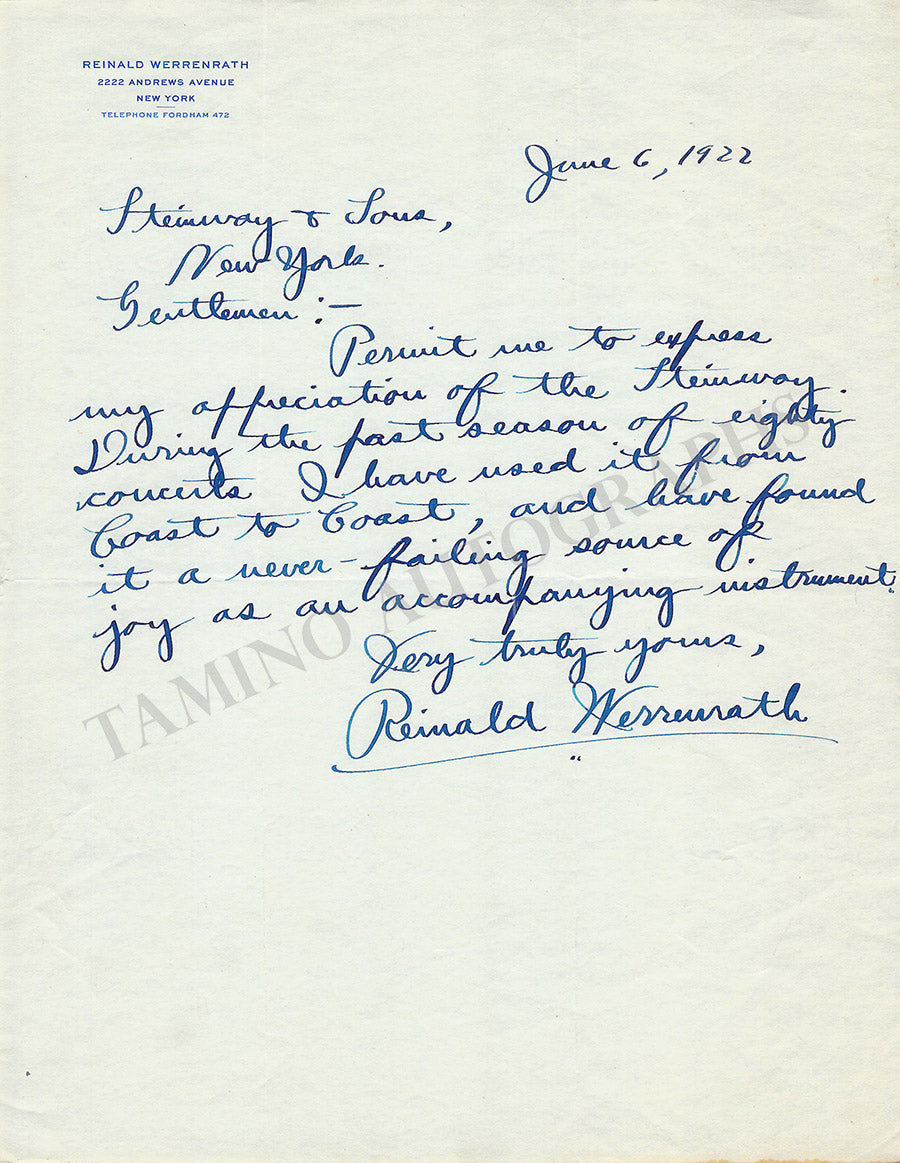 REINALD WERRENRATH
2222 ANDREWS AVENUE
NEW YORK
TELEPHONE FORDHAM 472
June 6, 1922
Steinway & Sons,
New York.
Gentlemen:—
Permit me to express
my appreciation of the Steinway.
During the past season of eighty
concerts I have used it from
Coast to Coast, and have found
it a never-failing source of
joy as an accompanying instrument.
Very truly yours,
Reinald Werrenrath
TAMINO AUTOGRAPHS